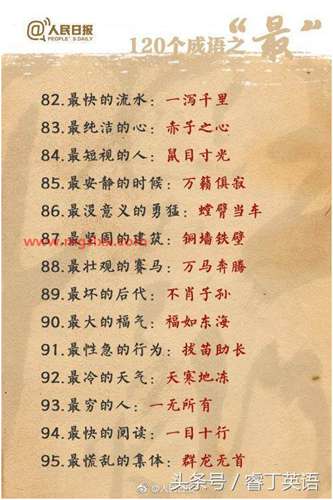 人民日报
PEOPLE'S DAILY
120个成语之“最”
82.最快的流水：一泻千里
83.最纯洁的心：赤子之心
84.最短视的人：鼠目寸光
85.最安静的时候：万籁俱寂
86.最没意义的勇猛：螳臂当车
87.最坚固的建筑：铜墙铁壁
88.最壮观的赛马：万马奔腾
89.最坏的后代：不肖子孙
90.最大的福气：福如东海
91.最性急的行为：拔苗助长
92.最冷的天气：天寒地冻
93.最穷的人：一无所有
94.最快的阅读：一目十行
95.最慌乱的集体：群龙无首
头条号/睿丁英语